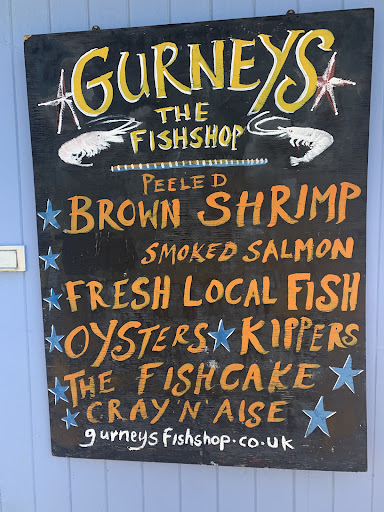 GURNEYS
THE
FISHSHOP
PEELED
BROWN SHRIMP
SMOKED SALMON
FRESH LOCAL FISH
OYSTERS KIPPERS
THE FISHCAKE
CRAY'N'AISE
gurneysfishshop.co.uk